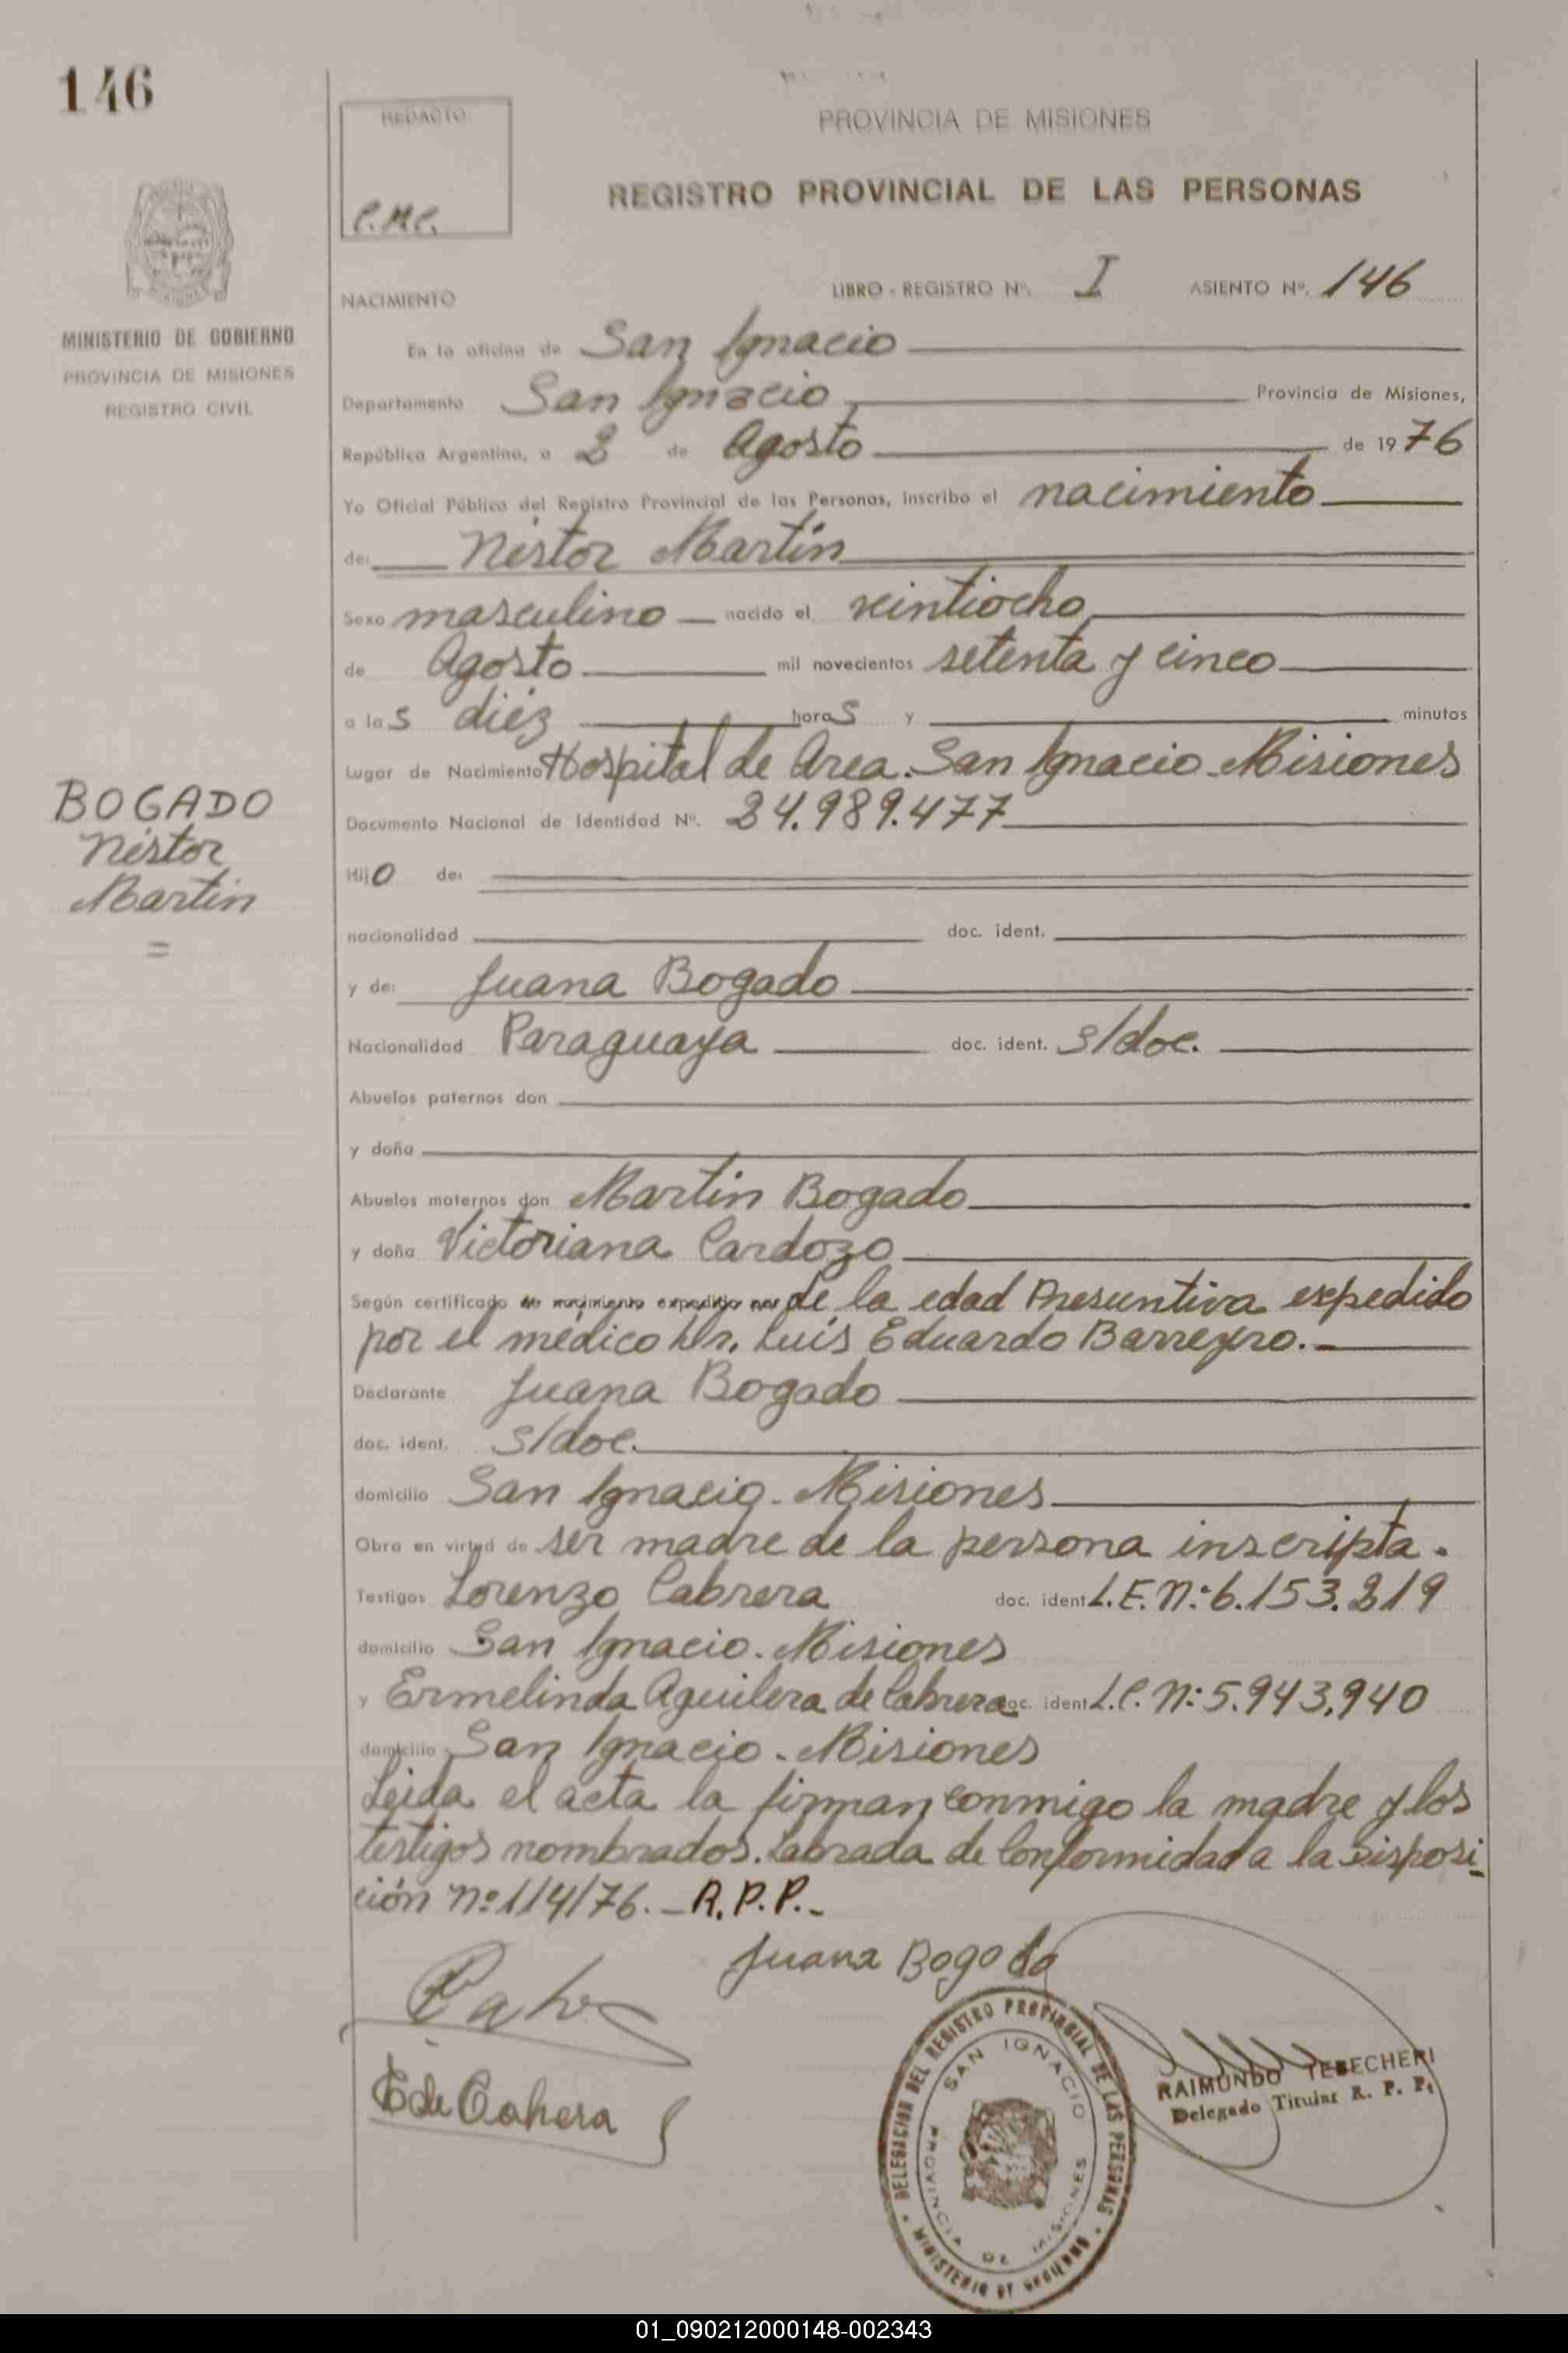 146
REDACTO
C.M.C.
PROVINCIA DE MISIONES
REGISTRO PROVINCIAL DE LAS PERSONAS
MINISTERIO DE GOBIERNO
PROVINCIA DE MISIONES
REGISTRO CIVIL
NACIMIENTO LIBRO - REGISTRO Nº. I ASIENTO Nº. 146
En la oficina de San Ignacio
Departamento San Ignacio, Provincia de Misiones,
República Argentina, a 2 de Agosto de 1976
Yo Oficial Público del Registro Provincial de las Personas, inscribo el nacimiento
de: Néstor Martín
Sexo masculino nacido el veintiocho
de Agosto mil novecientos setenta y cinco
a las diéz horas y minutos
Lugar de Nacimiento Hospital de Area. San Ignacio. Misiones
Documento Nacional de Identidad Nº. 24.989.477
BOGADO
Néstor
Martín
Hijo de:
nacionalidad doc. ident.
y de: Juana Bogado
Nacionalidad Paraguaya doc. ident. s/doc.
Abuelos paternos don
y doña
Abuelos maternos don Martin Bogado
y doña Victoriana Cardozo
Según certificado de nacimiento expedido por de la edad Presuntiva expedido
por el médico Dr. Luís Eduardo Barreyro.-
Declarante Juana Bogado
doc. ident. s/doc.
domicilio San Ignacio. Misiones
Obra en virtud de ser madre de la persona inscripta.
Testigos Lorenzo Cabrera doc. ident L.E. Nº: 6.153.219
domicilio San Ignacio. Misiones
y Ermelinda Aguilera de Cabrera doc. ident L.C. Nº: 5.943.940
domicilio San Ignacio. Misiones
Leida el acta la firman conmigo la madre y los
testigos nombrados. Labrada de Conformidad a la Disposi-
ción Nº 114/76. - R.P.P.-
Juana Bogado
E de Cabrera
DELEGACION DEL REGISTRO PROVINCIAL DE LAS PERSONAS
SAN IGNACIO
PROVINCIA DE MISIONES
MINISTERIO DE GOBIERNO
RAIMUNDO TEBECHERI
Delegado Titular R. P. P.
01_090212000148-002343